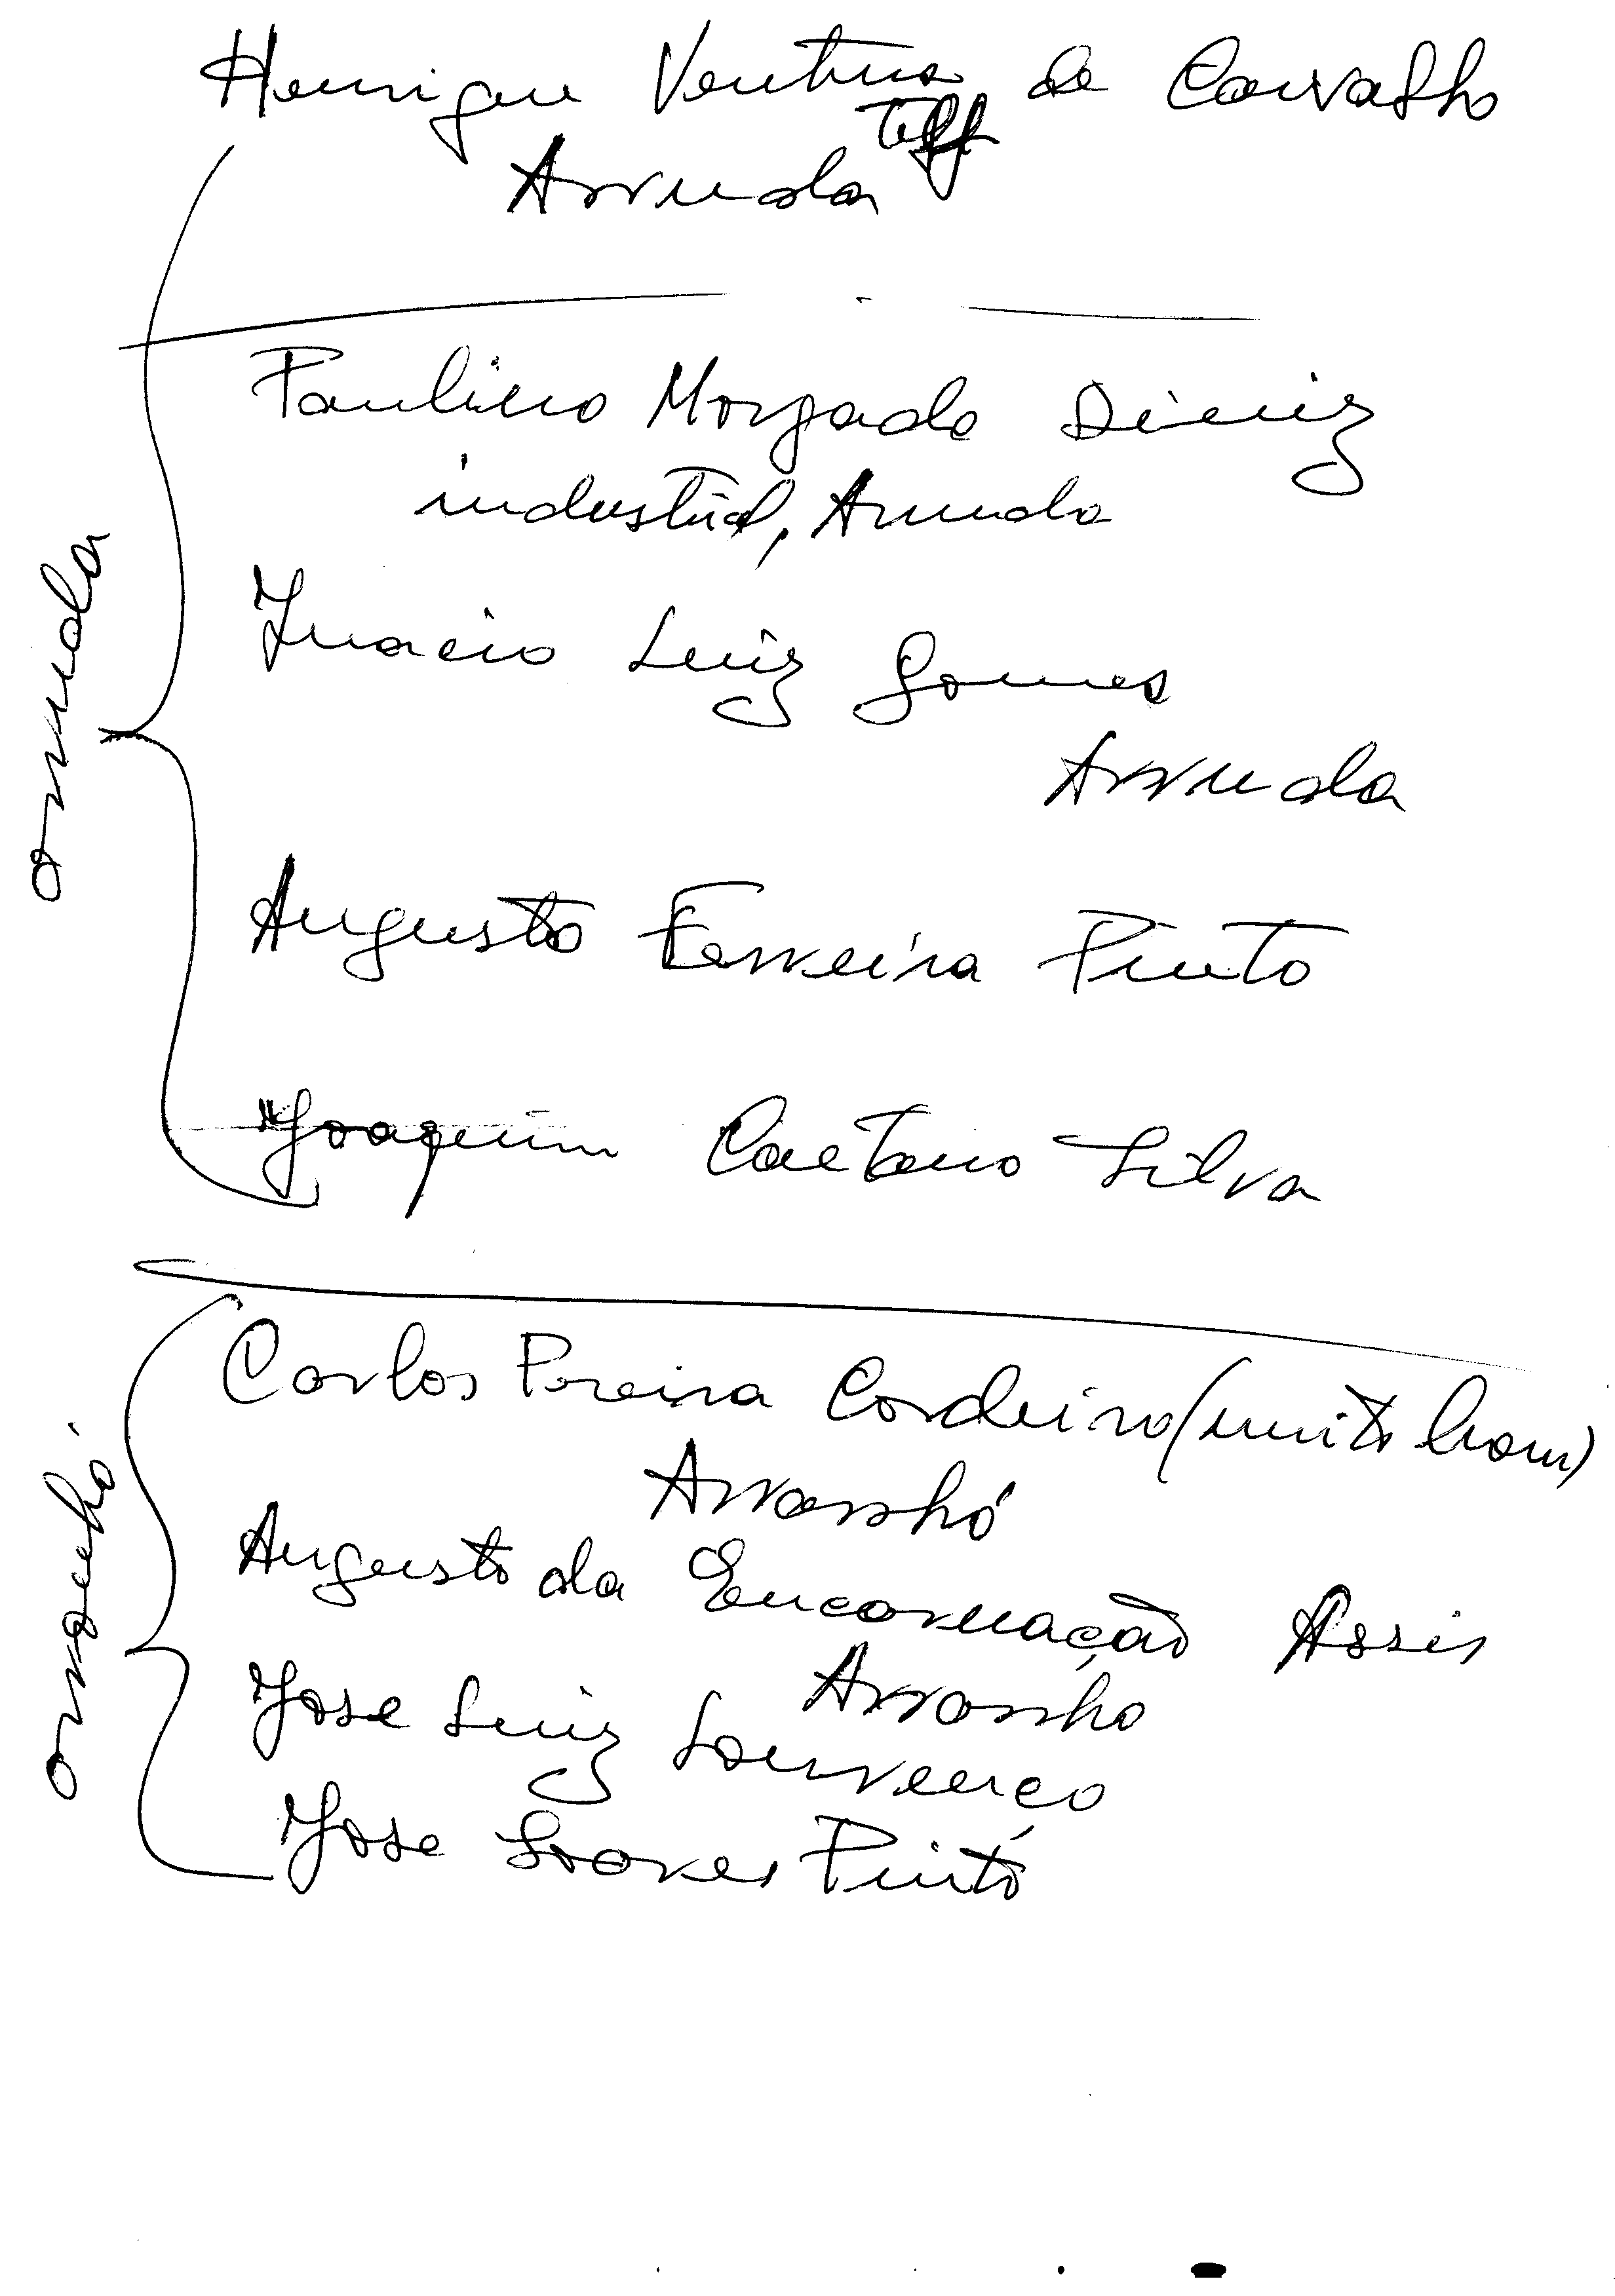 Henrique Ventura de Carvalho
Telf
Arruda
Paulino Morgado Diniz
industrial, Arruda
Inacio Luiz Gomes
Arruda
arruda
Augusto Ferreira Pinto
Joaquim Caetano Silva
Carlos Pereira Cordeiro (muito bom)
Arranhó
Augusto da Encarnação Assis
Arranhó
arranhó
Jose Luiz Lourenço
Jose Soares Pinto